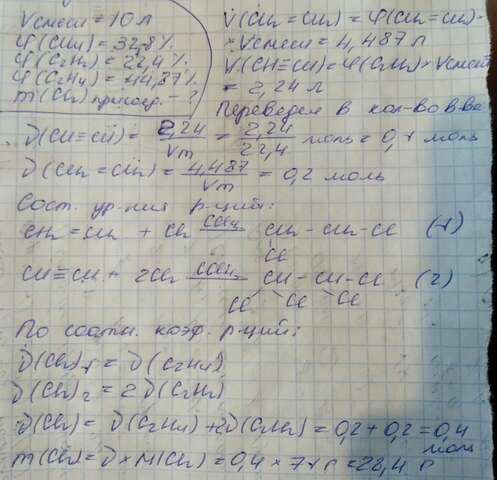 Vсмеси = 10 л
φ(CH₄) = 32,8%
φ(C₂H₂) = 22,4%
φ(C₂H₄) = 44,87%
m(Cl₂) присоед. - ?
V(CH₂=CH₂) = φ(CH₂=CH₂)·
× Vсмеси = 4,487 л
V(CH≡CH) = φ(C₂H₂) × Vсмеси
= 2,24 л
Переведем в кол-во в-ва
ν(CH≡CH) = 2,24/Vm = 2,24/22,4 моль = 0,1 моль
ν(CH₂=CH₂) = 4,487/Vm = 0,2 моль
Сост. ур-ния р-ций:
CH₂=CH₂ + Cl₂ CCl₄ CH₂-CH₂-Cl (1)
Cl
CH≡CH + 2Cl₂ CCl₄ CH-CH-Cl (2)
Cl Cl Cl
По соотн. коэф. р-ций:
ν(Cl₂)₁ = ν(C₂H₄)
ν(Cl₂)₂ = 2ν(C₂H₂)
ν(Cl₂) = ν(C₂H₄) + 2ν(C₂H₂) = 0,2 + 0,2 = 0,4
моль
m(Cl₂) = ν × M(Cl₂) = 0,4 × 71 г = 28,4 г